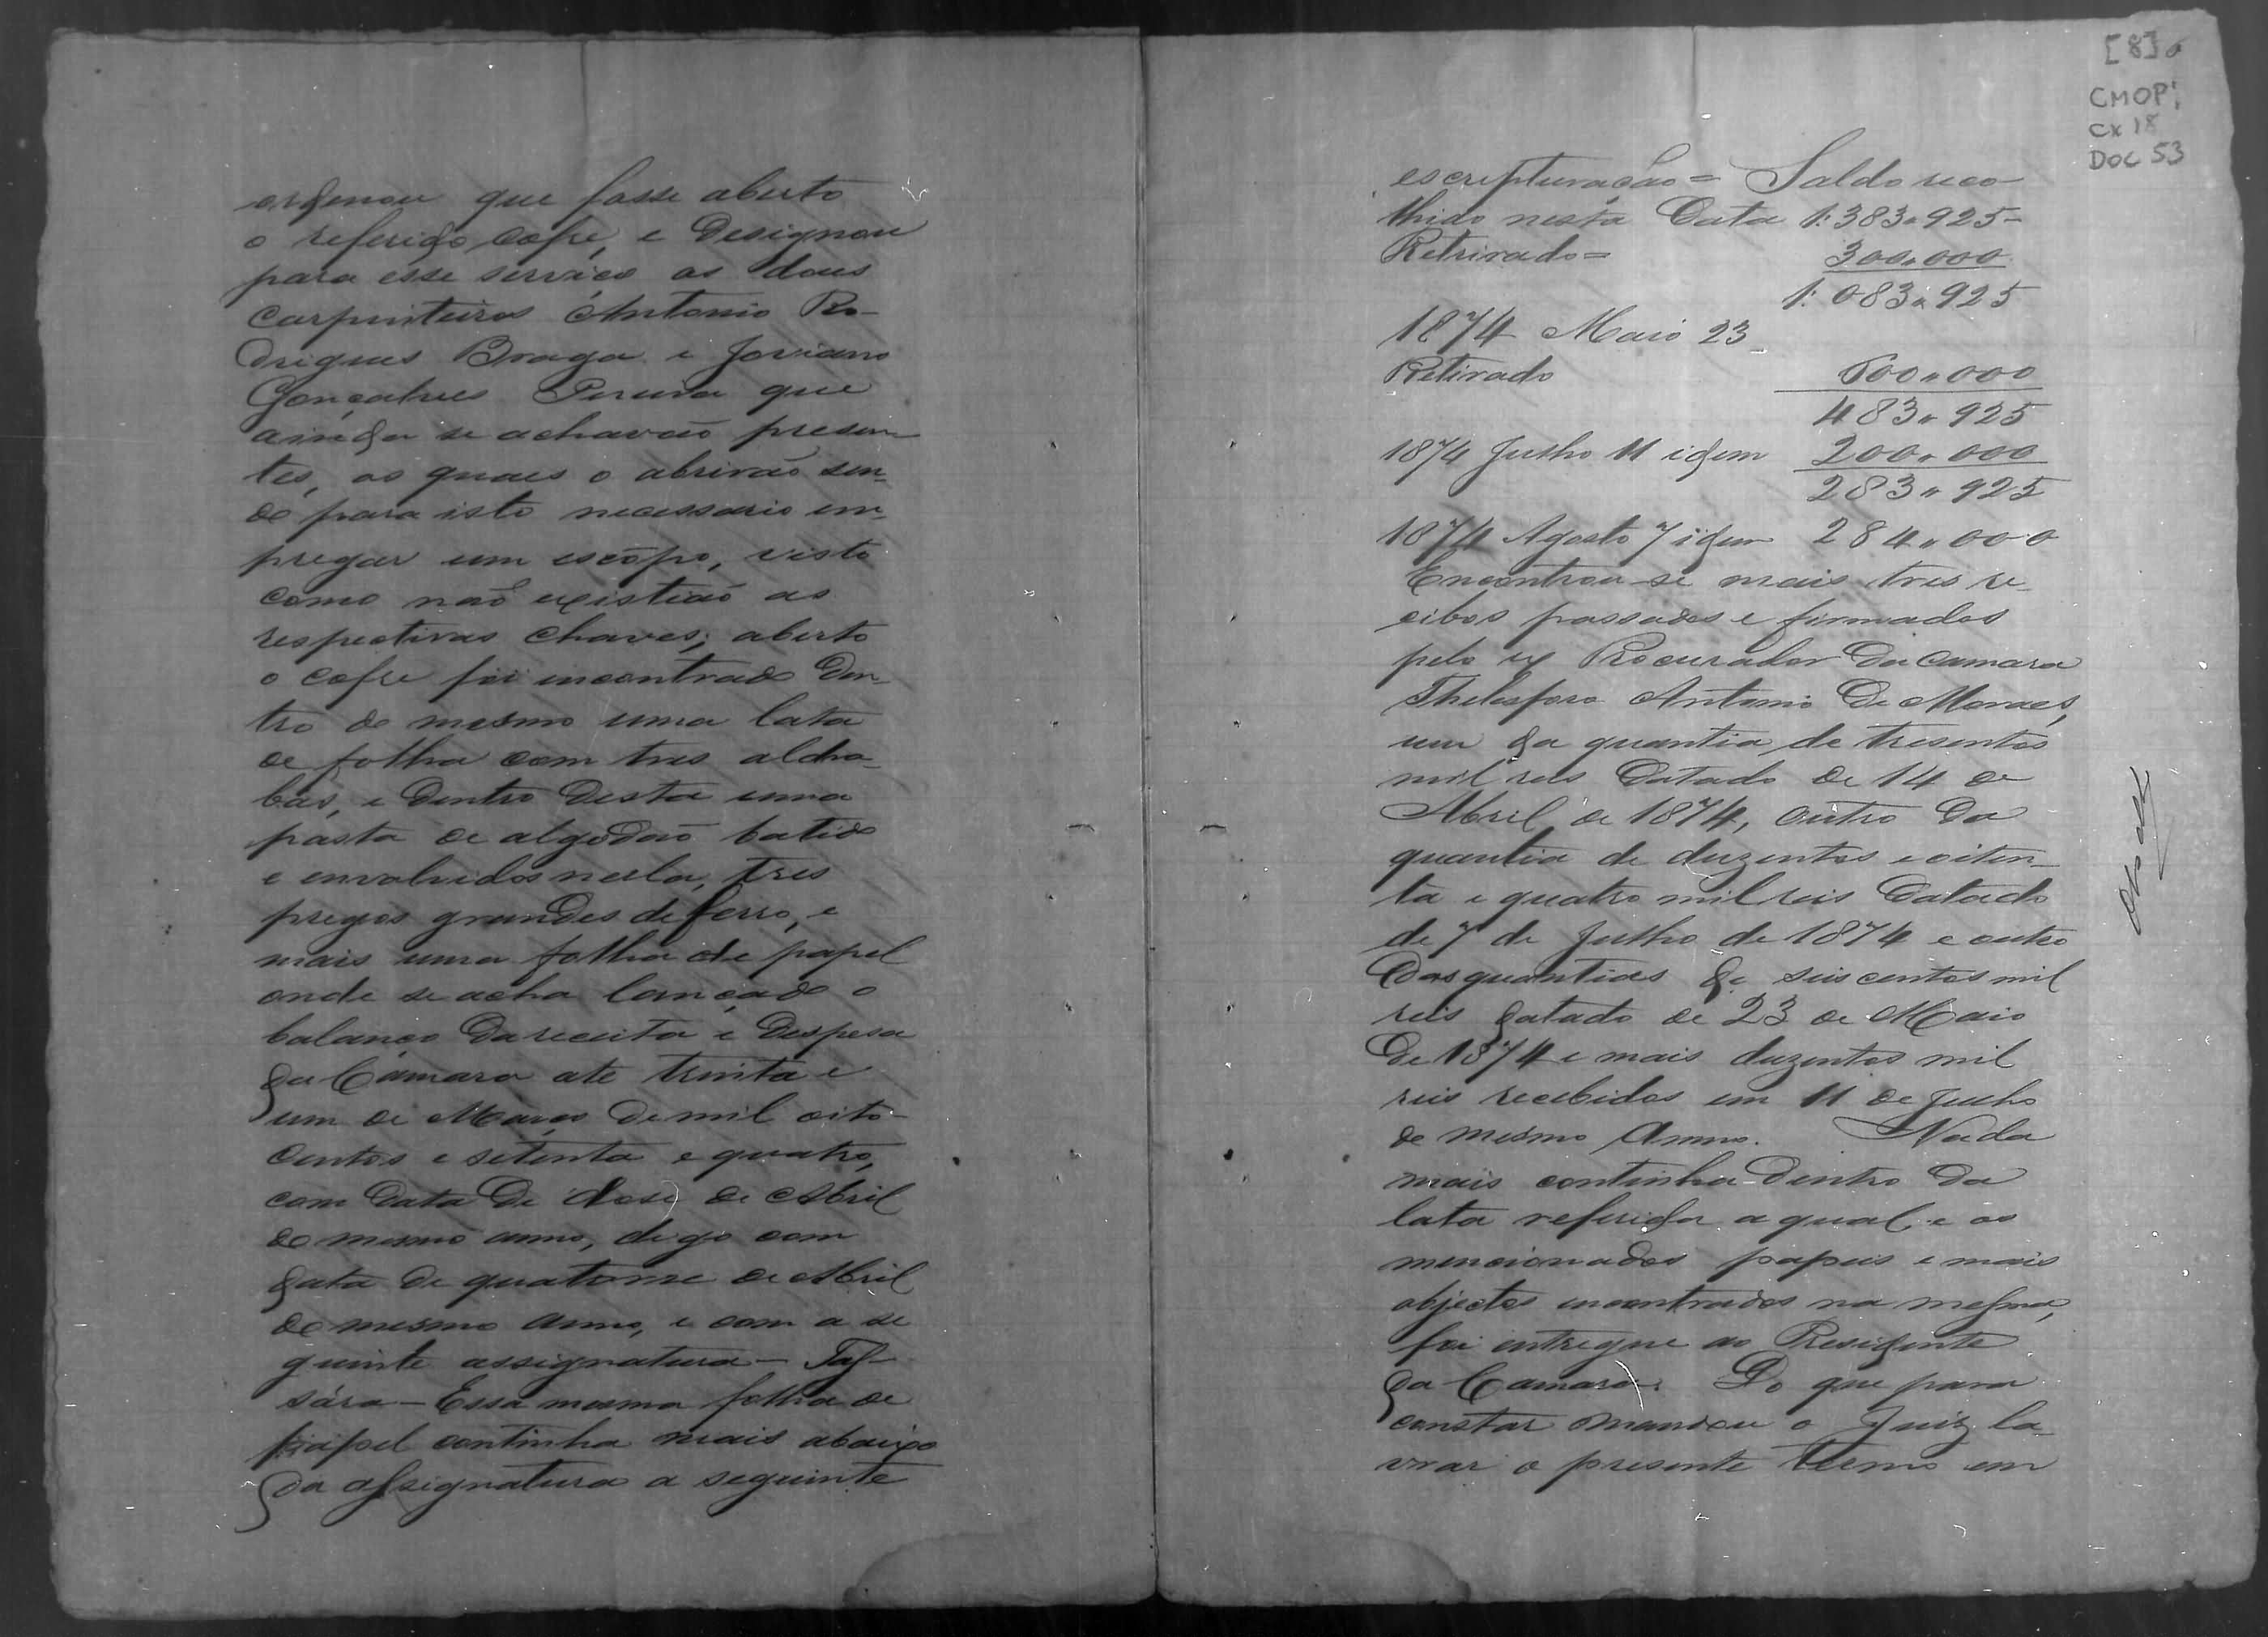 ordenou que fosse aberto
o referido cofre, e designou
para esse serviço os dous
carpinteiros Antonio Ro-
drigues Braga e Joviano
Gonçalves Pereira que
ainda se achavão presen-
tes, os quaes o abrirão sen-
do para isto necessario em-
pregar um escôpo, visto
como não existião as
respectivas chaves; aberto
o cofre foi encontrado den-
tro do mesmo uma lata
de folha com tres aldra-
bas, e dentro desta uma
pasta de algodão batido
e envolvidos nella, tres
pregos grandes de ferro, e
mais uma folha de papel
onde se acha lançado o
balanço da receita e despesa
da Camara ate trinta e
um de Março de mil oito-
centos e setenta e quatro,
com data de dose de Abril
do mesmo anno, digo com
data de quatorze de Abril
do mesmo anno, e com a se
guinte assignatura - Tas-
sára - Essa mesma folha de
papel continha mais abaixo
da assignatura a seguinte
[8]
CMOP;
CX 18
DOC 53
escripturação = Saldo reco-
lhido nesta data 1:383"925-
Retirado = 300"000
1:083"925
1874 Maio 23
Retirado 600"000
483"925
1874 Julho 11 idem 200"000
283"925
1874 Agosto 7 idem 284"000
Encontrou-se mais tres re-
cibos passados e firmados
pelo ex Procurador da Camara
Thelesforo Antonio de Moraes,
um da quantia de tresentos
mil reis datado de 14 de
Abril de 1874, outro da
quantia de duzentos e oiten-
ta e quatro mil reis datado
de 7 de Julho de 1874 e outro
das quantias de seis centos mil
reis datado de 23 de Maio
de 1874 e mais duzentos mil
reis recebidos em 11 de Junho
do mesmo Anno. Nada
mais continha dentro da
lata referida a qual e os
mencionados papeis e mais
objectos encontrados na mesma,
foi entregue ao Presidente
da Camara. Do que para
constar mandou o Juiz la-
vrar o presente termo em